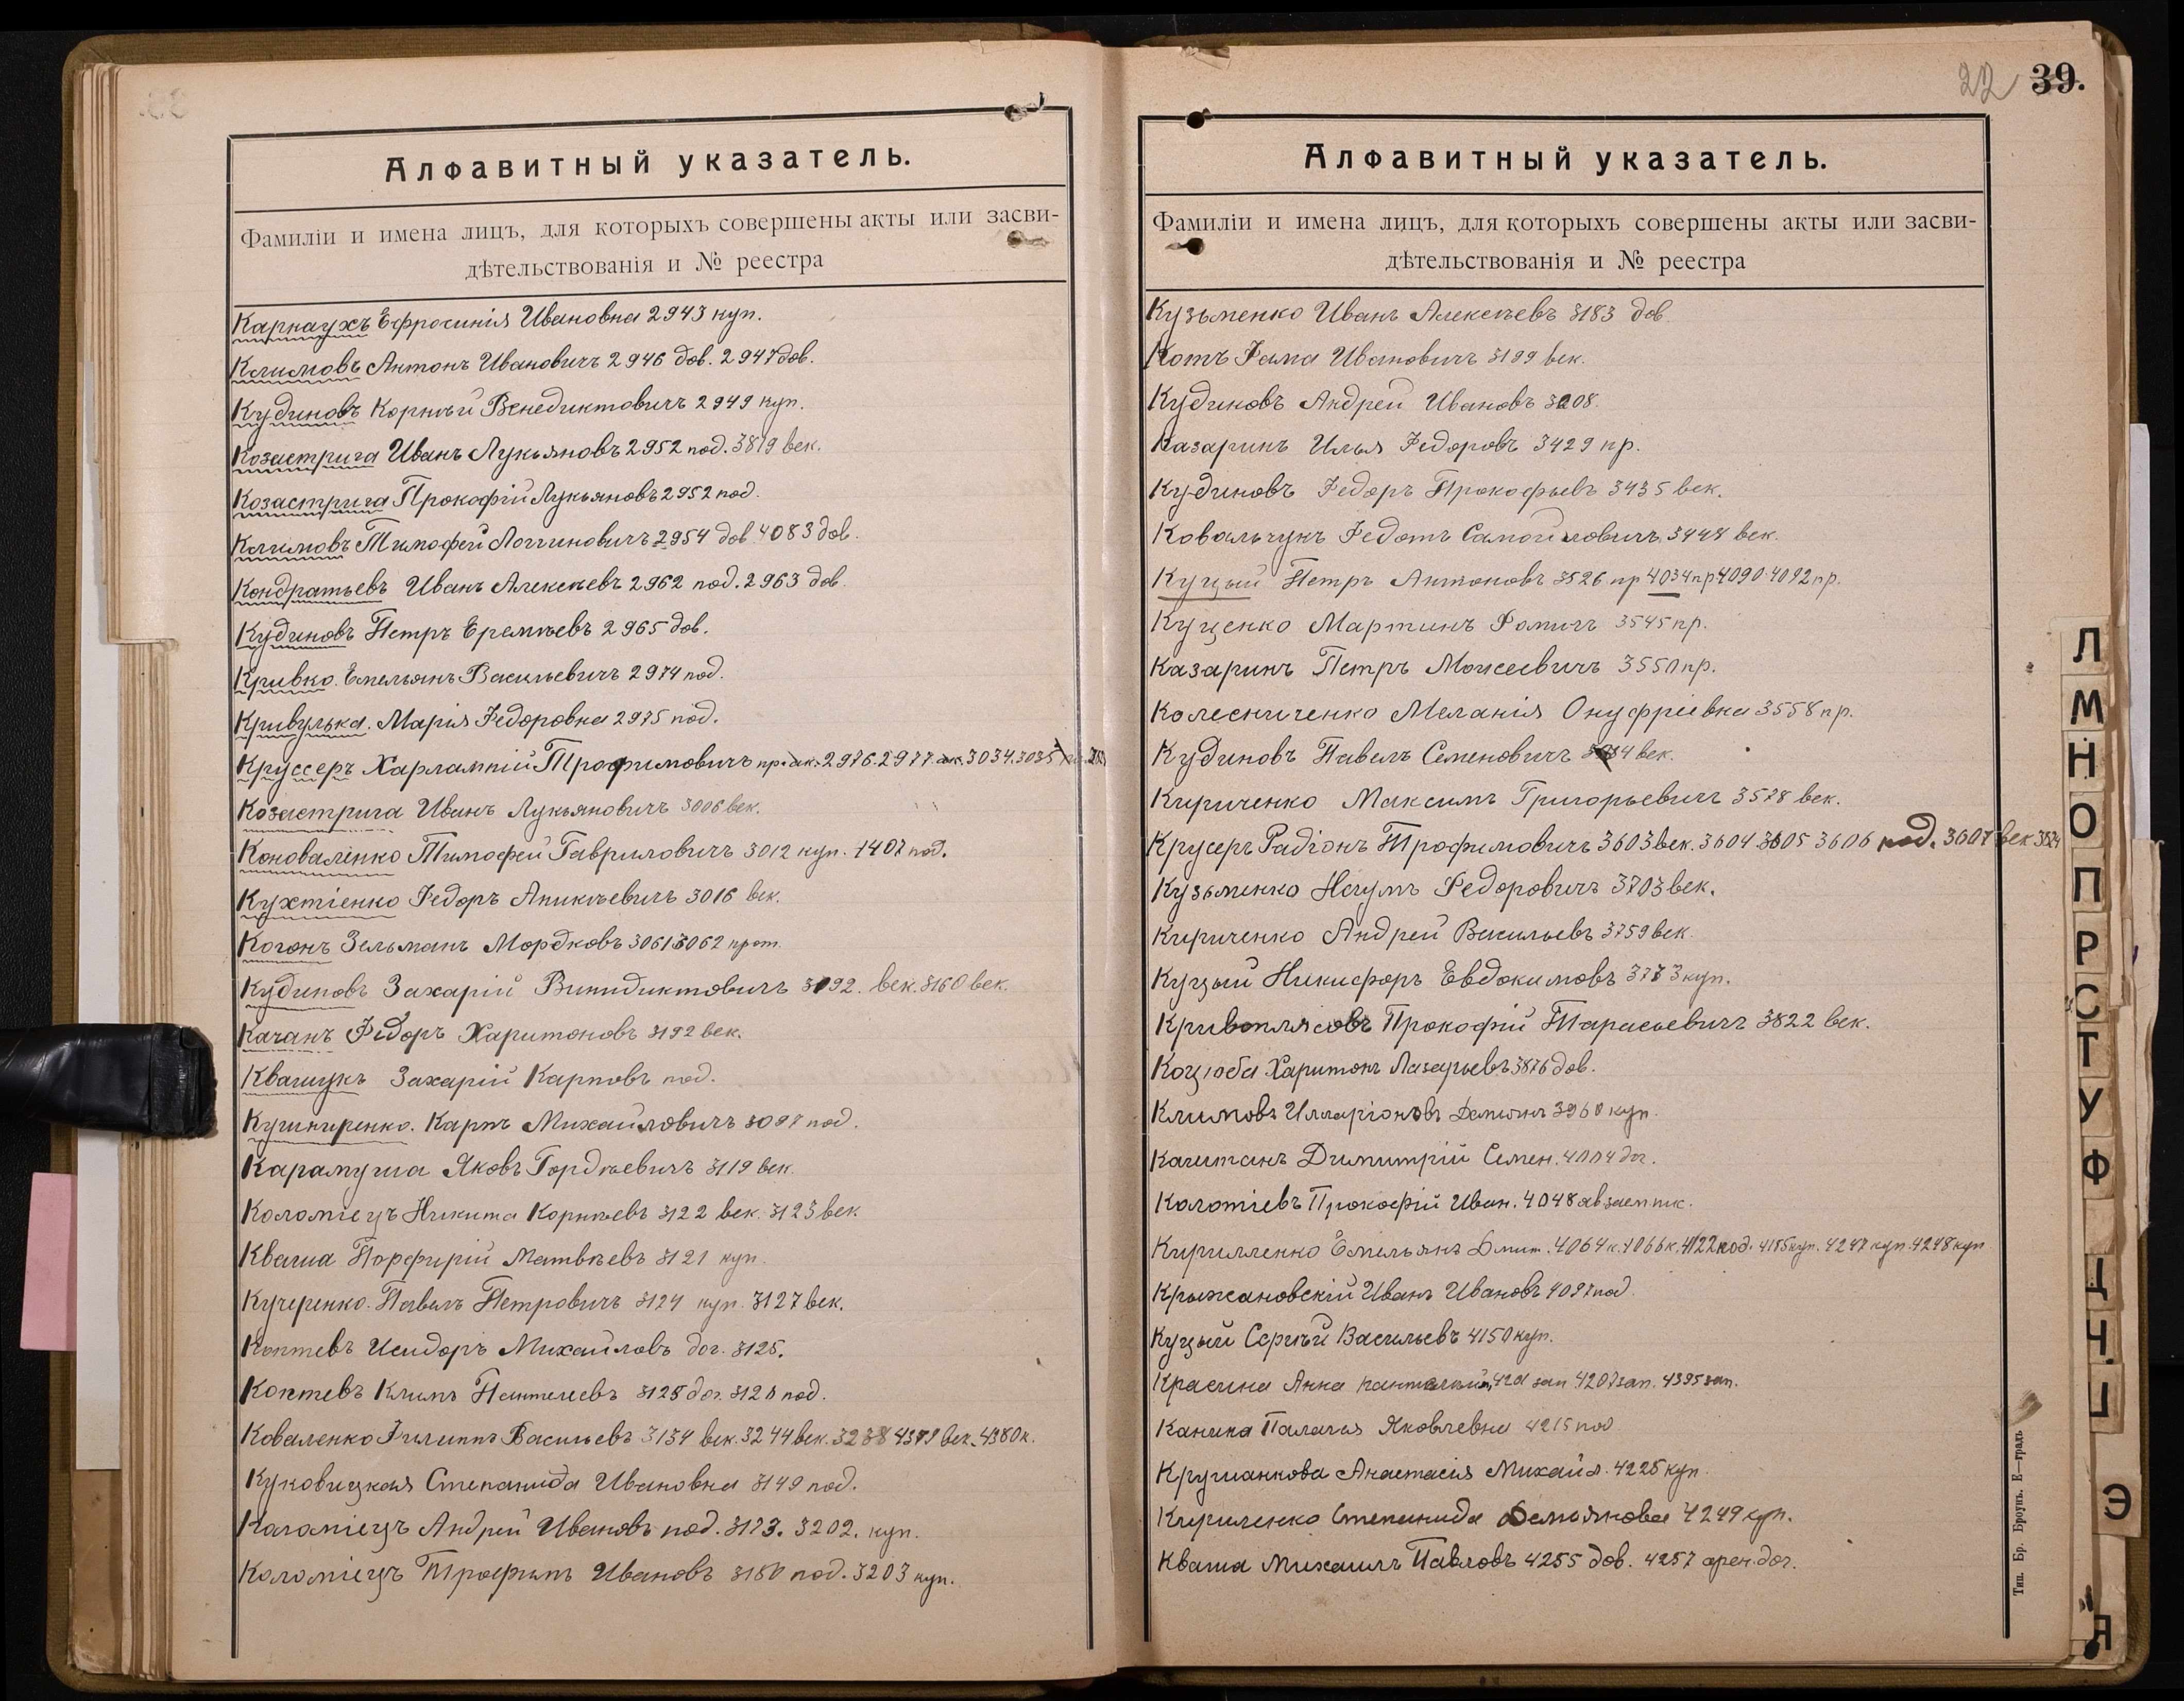 Алфавитный указатель.
Фамиліи и имена лицъ, для которыхъ совершены акты или засви-
дѣтельствованія и № реестра
Карнаухъ Ефросинія Ивановна 2943 куп.
Климовъ Антонъ Ивановичъ 2946 дов. 2947 дов.
Кудиновъ Корнѣй Венедиктовичъ 2949 куп.
Козастрига Иванъ Лукьяновъ 2952 под. 3819 век.
Козастрига Прокофій Лукьяновъ 2952 под.
Климовъ Тимофей Логгиновичъ 2954 дов 4083 дов.
Кондратьевъ Иванъ Алексѣевъ 2962 под. 2963 дов.
Кудиновъ Петръ Еремѣевъ 2965 дов.
Кривко. Емельянъ Васильевичъ 2974 под.
Кривулька. Марія Федоровна 2975 под.
Круссеръ Харлампій Трофимовичъ 2976. 2977. 3034. 3035
Козастрига Иванъ Лукьяновичъ 3006 век.
Коноваленко Тимофей Гавриловичъ 3012 куп. 1407 под.
Кухтіенко Федоръ Аникѣевичъ 3016 век.
Когонъ Зельманъ Мордковъ 3061 3062 прот.
Кудиновъ Захарій Винидиктовичъ 3092. век. 3160 век.
Качанъ Федоръ Харитоновъ 3192 век.
Квашукъ Захарій Карповъ под.
Кушниренко. Карпъ Михайловичъ 3097 под.
Карамуша Яковъ Гордѣевичъ 3119 век.
Коломіецъ Никита Корнѣевъ 3122 век. 3123 век.
Кваша Порфирій Матвѣевъ 3121 куп.
Кучеренко. Павелъ Петровичъ 3124 куп. 3127 век.
Коптевъ Исидоръ Михайловъ дог. 3125.
Коптевъ Климъ Пантелеевъ 3125 дог. под.
Коваленко Филиппъ Васильевъ 3134 век. 3244 век. 3238 4379 век. 4380 к.
Куковицкая Степанида Ивановна 3149 под.
Коломіецъ Андрей Ивановъ под. 3173. 3202. куп.
Коломіецъ Трофимъ Ивановъ 3180 под. 3203 куп.
22 39.
Алфавитный указатель.
Фамиліи и имена лицъ, для которыхъ совершены акты или засви-
дѣтельствованія и № реестра
Кузьменко Иванъ Алексѣевъ 3183 дов.
Котъ Фама Ивановичъ 3199 век.
Кудиновъ Андрей Ивановъ 3208.
Казаринъ Илья Федоровъ 3429 пр.
Кудиновъ Федоръ Прокофьевъ 3435 век.
Ковальчукъ Федотъ Самойловичъ 3444 век.
Куцый Петръ Антоновъ 3526 пр 4034 пр 4090. 4092 пр.
Куценко Мартинъ Фомичъ 3545 пр.
Казаринъ Петръ Моисеевичъ 3550 пр.
Колесниченко Меланія Онуфріевна 3558 пр.
Кудиновъ Павелъ Семеновичъ век.
Кириченко Максимъ Григорьевичъ 3578 век.
Крусеръ Радіонъ Трофимовичъ 3603 век. 3604. 3605 3606 под. 3607 век
Кузьменко Наумъ Федоровичъ 3703 век.
Кириченко Андрей Васильевъ 3759 век.
Куцый Никифоръ Евдокимовъ 3773 куп.
Кривоплясовъ Прокофій Тарасьевичъ 3822 век.
Коцюба Харитонъ Лазарьевъ 3876 дов.
Климовъ Илларіоновъ Демьянъ 3960 куп.
Каштанъ Димитрій Семен. 4004 дог.
Колотіевъ Прокофій Иван. 4048
Кирилленко Емельянъ Дмит. 4064 к. 4066 к. 4122 под. 4185 куп. 4247 куп. 4248 куп
Крыжановскій Иванъ Ивановъ 4097 под.
Куцый Сергѣй Васильевъ 4150 куп.
Красина Анна зап. 4207 зап. 4395 зап.
Каника Палагія Яковлевна 4215 под
Крушанкова Анастасія Михайл. 4225 куп.
Кириченко Степанида Демьянова 4249 куп.
Кваша Михаилъ Павловъ 4255 дов. 4257 арен. дог.
Тип. Бр. Броунъ. Е—градъ
Л
М
Н
О
П
Р
С
Т
У
Ф
Ц
Ч
Э
Я